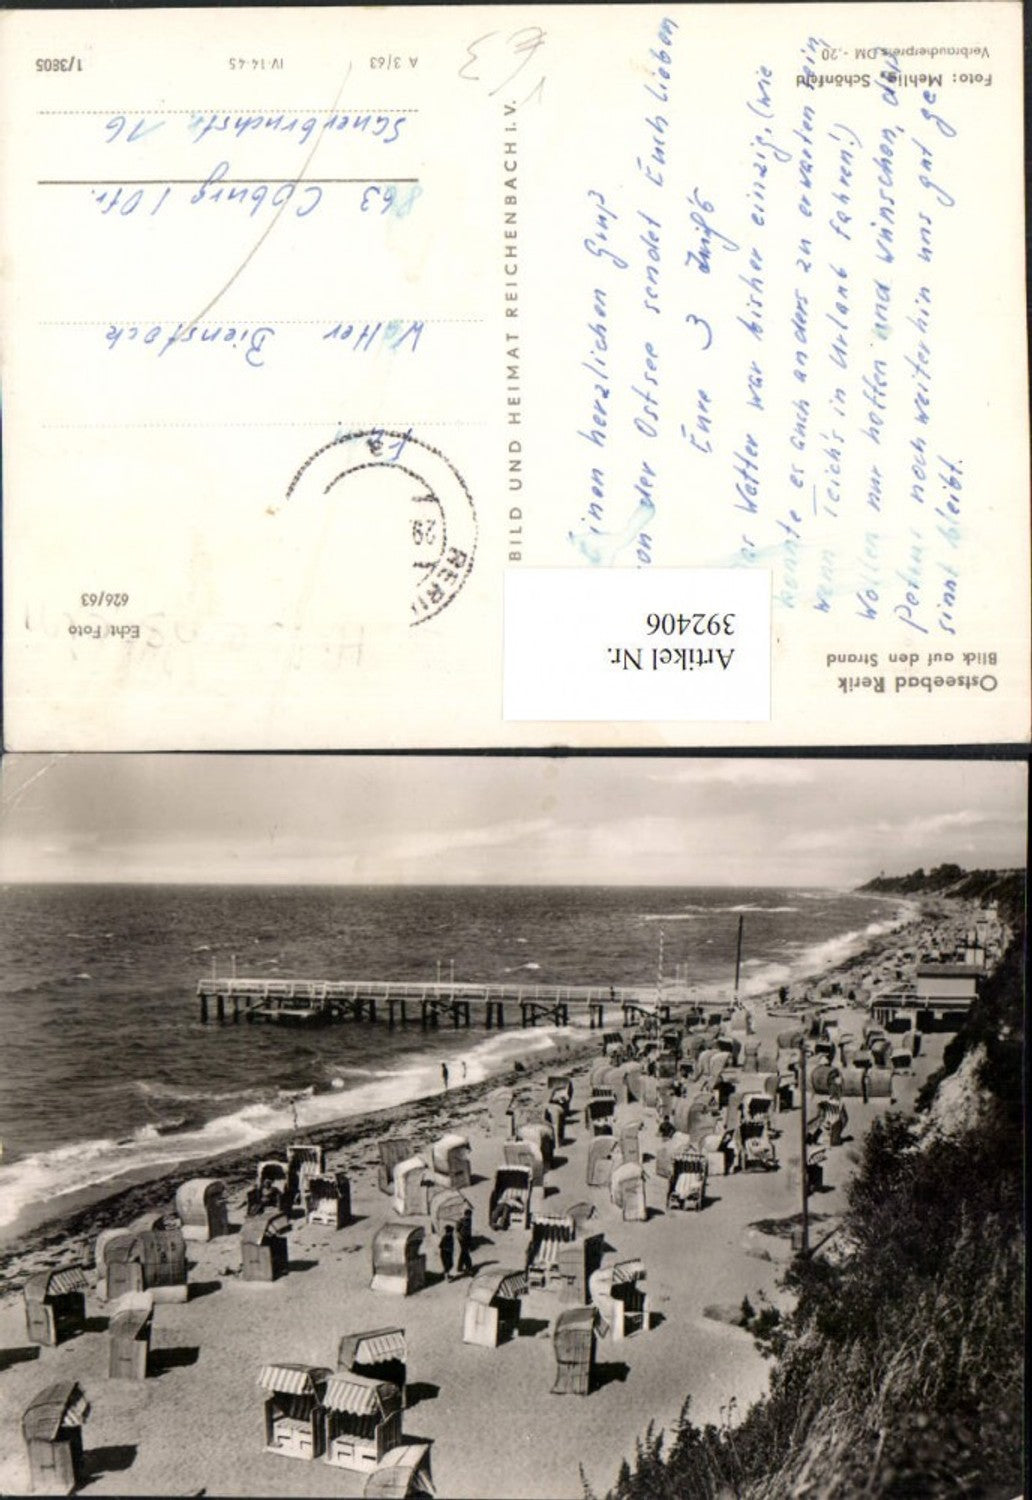 Ostseebad Rerik
Blick auf den Strand
Einen herzlichen Gruß
von der Ostsee sendet Euch lieben
Eure 3
Das Wetter war bisher einzig, (wie
könnte es auch anders zu erwarten sein
wenn in Urlaub fahren!)
Wollen nur hoffen und wünschen, daß
Petrus noch weiterhin uns gut ge
sinnt bleibt.
Foto: Mehlig, Schönfeld
Verbraucherpreis DM -,20
BILD UND HEIMAT REICHENBACH I. V.
Artikel Nr.
392406
Echt Foto
626/63
RERIK
29.
a
Walter Bienstock
863 Coburg / Ofr.
Sauerbruchstr. 16
A 3/63 IV-14-45 1/3805
€3